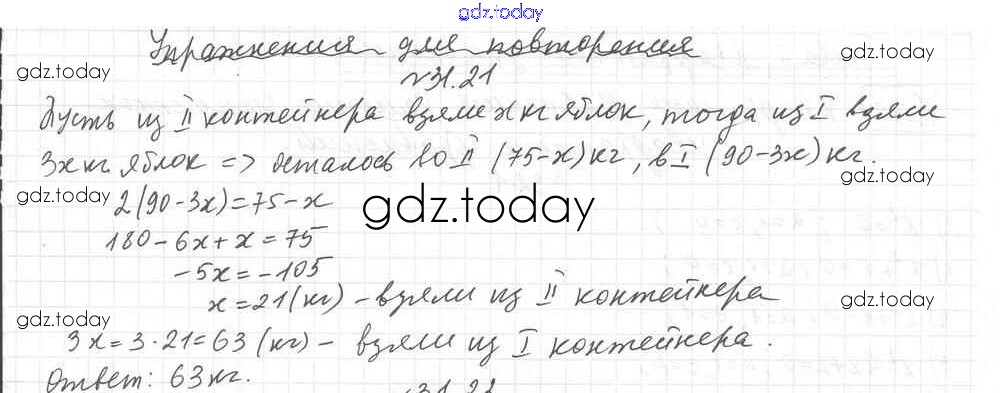 gdz.today
Упражнения для повторения
gdz.today gdz.today
№31.21
Пусть из II контейнера взяли x кг яблок, тогда из I взяли
3x кг яблок => осталось во II (75-x) кг, в I (90-3x) кг.
gdz.today gdz.today
2(90-3x)=75-x
gdz.today
180-6x+x=75
-5x=-105
x=21(кг) - взяли из II контейнера
gdz.today gdz.today
3x=3·21=63 (кг) - взяли из I контейнера.
Ответ: 63 кг.